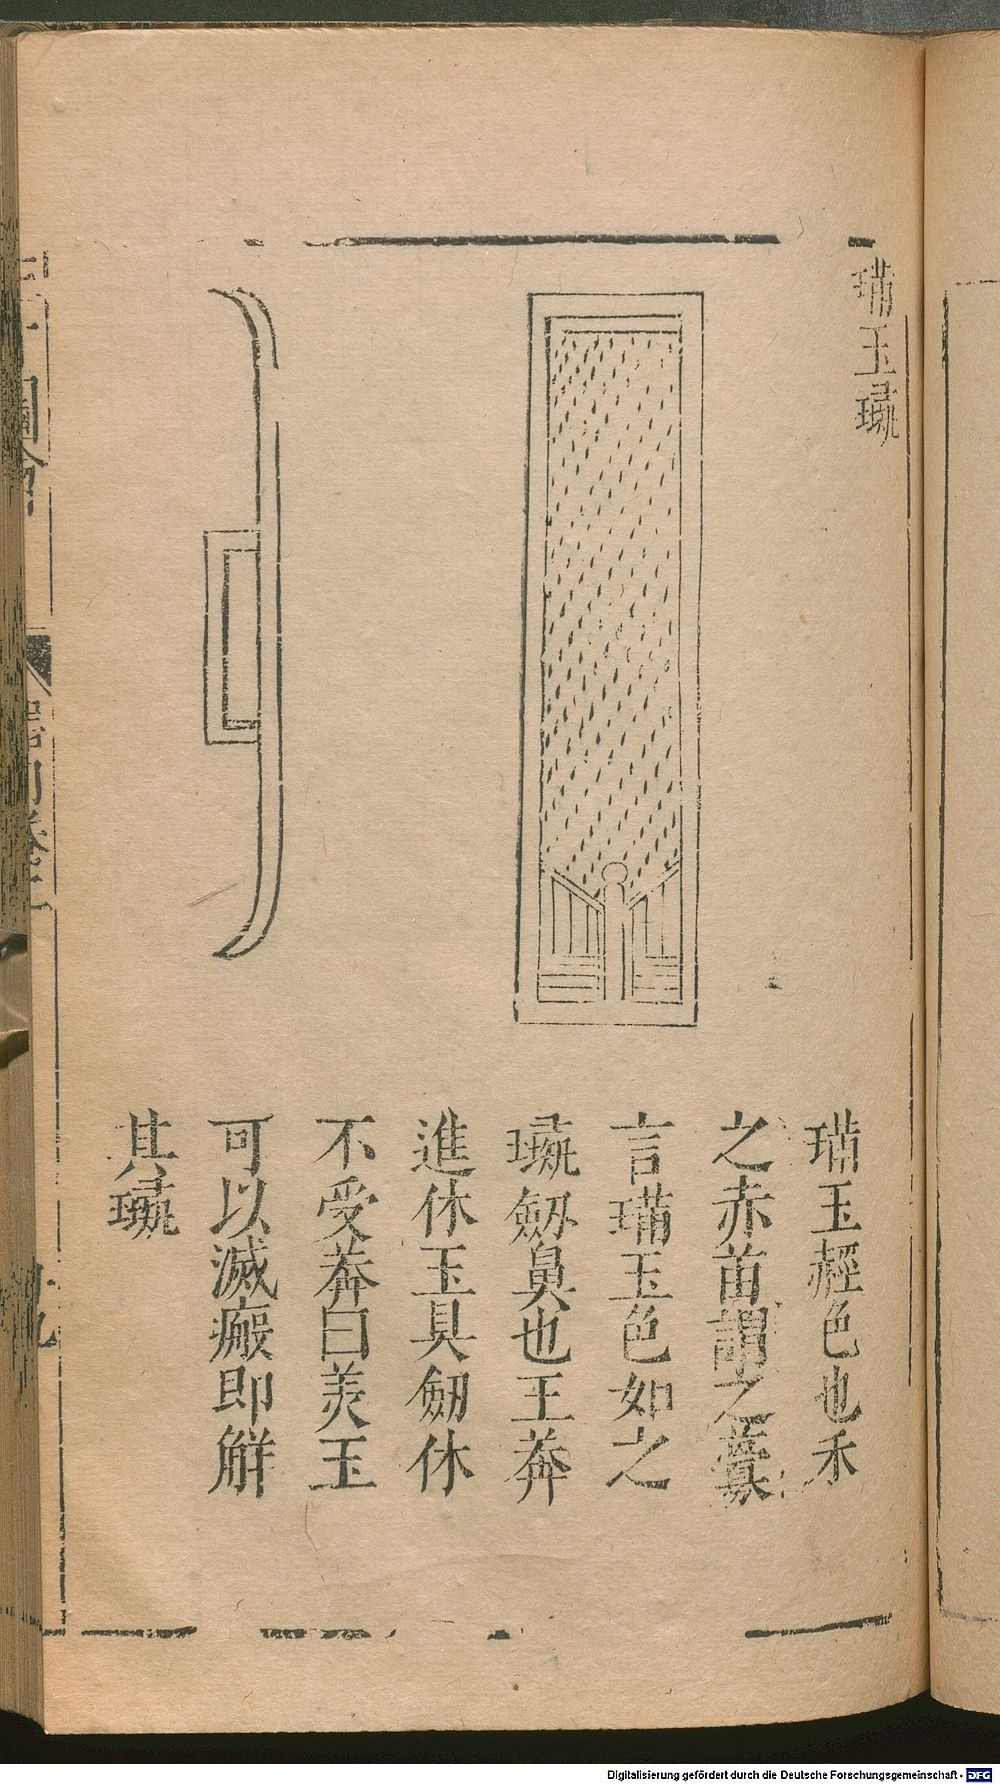 璊玉璏
璊玉䞓色也禾
之赤苗謂之虋
言璊玉色如之
璏劒鼻也王莽
進休玉具劒休
不受莽曰美玉
可以滅瘢即解
其璏
Digitalisierung gefördert durch die Deutsche Forschungsgemeinschaft - DFG